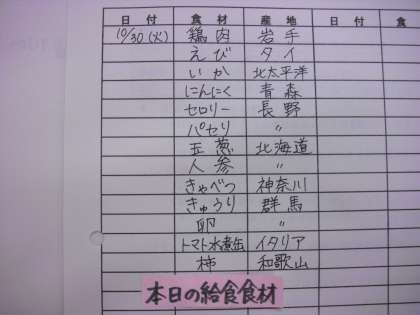 日付 食材 産地 日付 食
10/30(火) 鶏肉 岩手
えび タイ
いか 北太平洋
にんにく 青森
セロリー 長野
パセリ 〃
玉葱 北海道
人参 〃
きゃべつ 神奈川
きゅうり 群馬
卵 〃
トマト水煮缶 イタリア
柿 和歌山
本日の給食食材